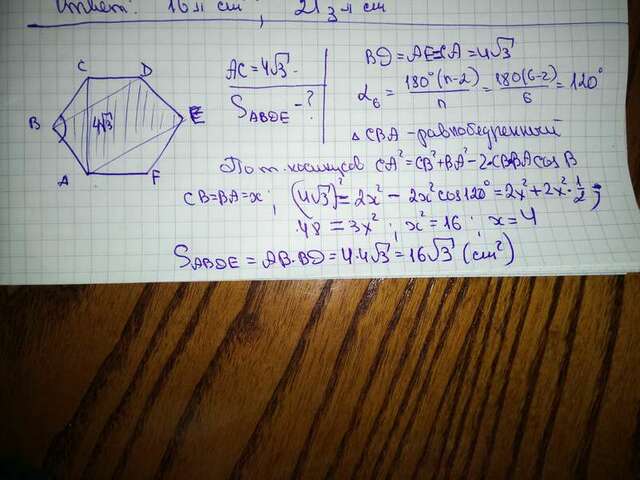 Ответ: 16π cm² ; 2
C D
B 4√3 E
A F
AC = 4√3.
S_ABDE - ?
BD = AE = CA = 4√3
α₆ = 180°(n-2)/n = 180(6-2)/6 = 120°
△ CBA - равнобедренный
По т. косинусов CA² = CB² + BA² - 2·CB·BA cos B
CB = BA = x ; (4√3)² = 2x² - 2x² cos 120° = 2x² + 2x² · 1/2 ;
48 = 3x² ; x² = 16 ; x = 4
S_ABDE = AB·BD = 4·4√3 = 16√3 (cm²)